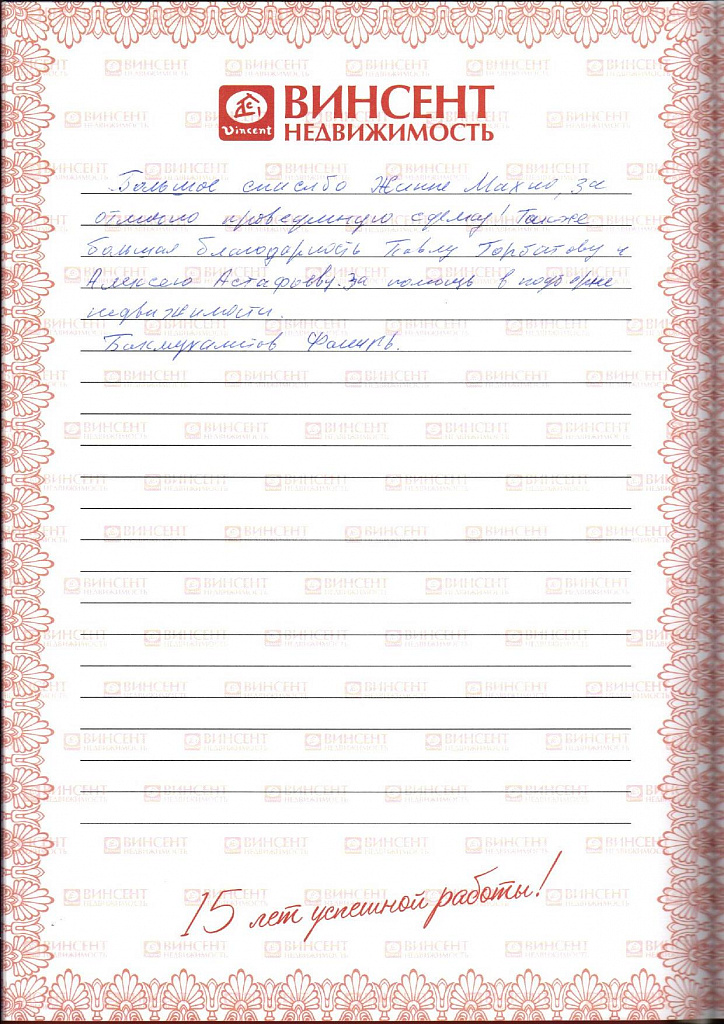 Vincent
ВИНСЕНТ
НЕДВИЖИМОСТЬ
Большое спасибо Жанне Махно, за
отлично проведенную сделку! Также
большая благодарность Павлу Горбатову и
Алексею Астафьеву за помощь в подборке
недвижимости.
15 лет успешной работы!